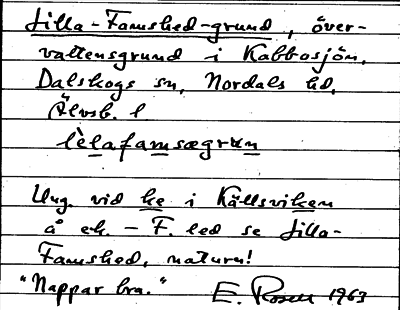 Lilla-Famshed-grund, över-
vattensgrund i Kabbosjön,
Dalskogs sn, Nordals hd,
Älvsb. l
lèlafamsægrun
Ung. vid ke i Källsviken
å ek. - F. led se Lilla-
Famshed, naturn!
"Nappar bra." E. Rosell 1963